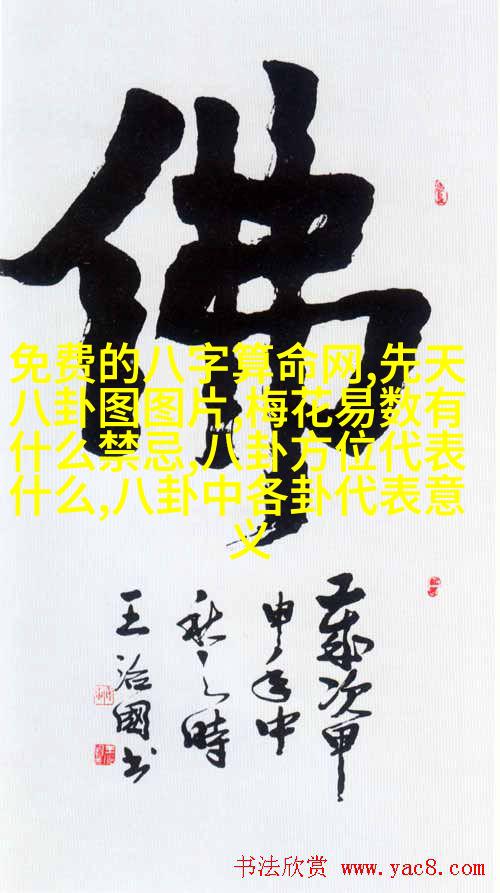 佛
免费的八字算命网,先天
八卦图图片,梅花易数有
什么禁忌,八卦方位代表
什么,八卦中各卦代表意
义
岁次甲
申年中
秋之时
王治国书
书法欣赏 www.yac8.com